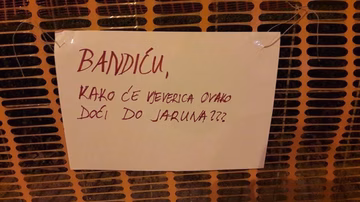 BANDIĆU,
KAKO ĆE VJEVERICA OVAKO
DOĆI DO JARUNA???